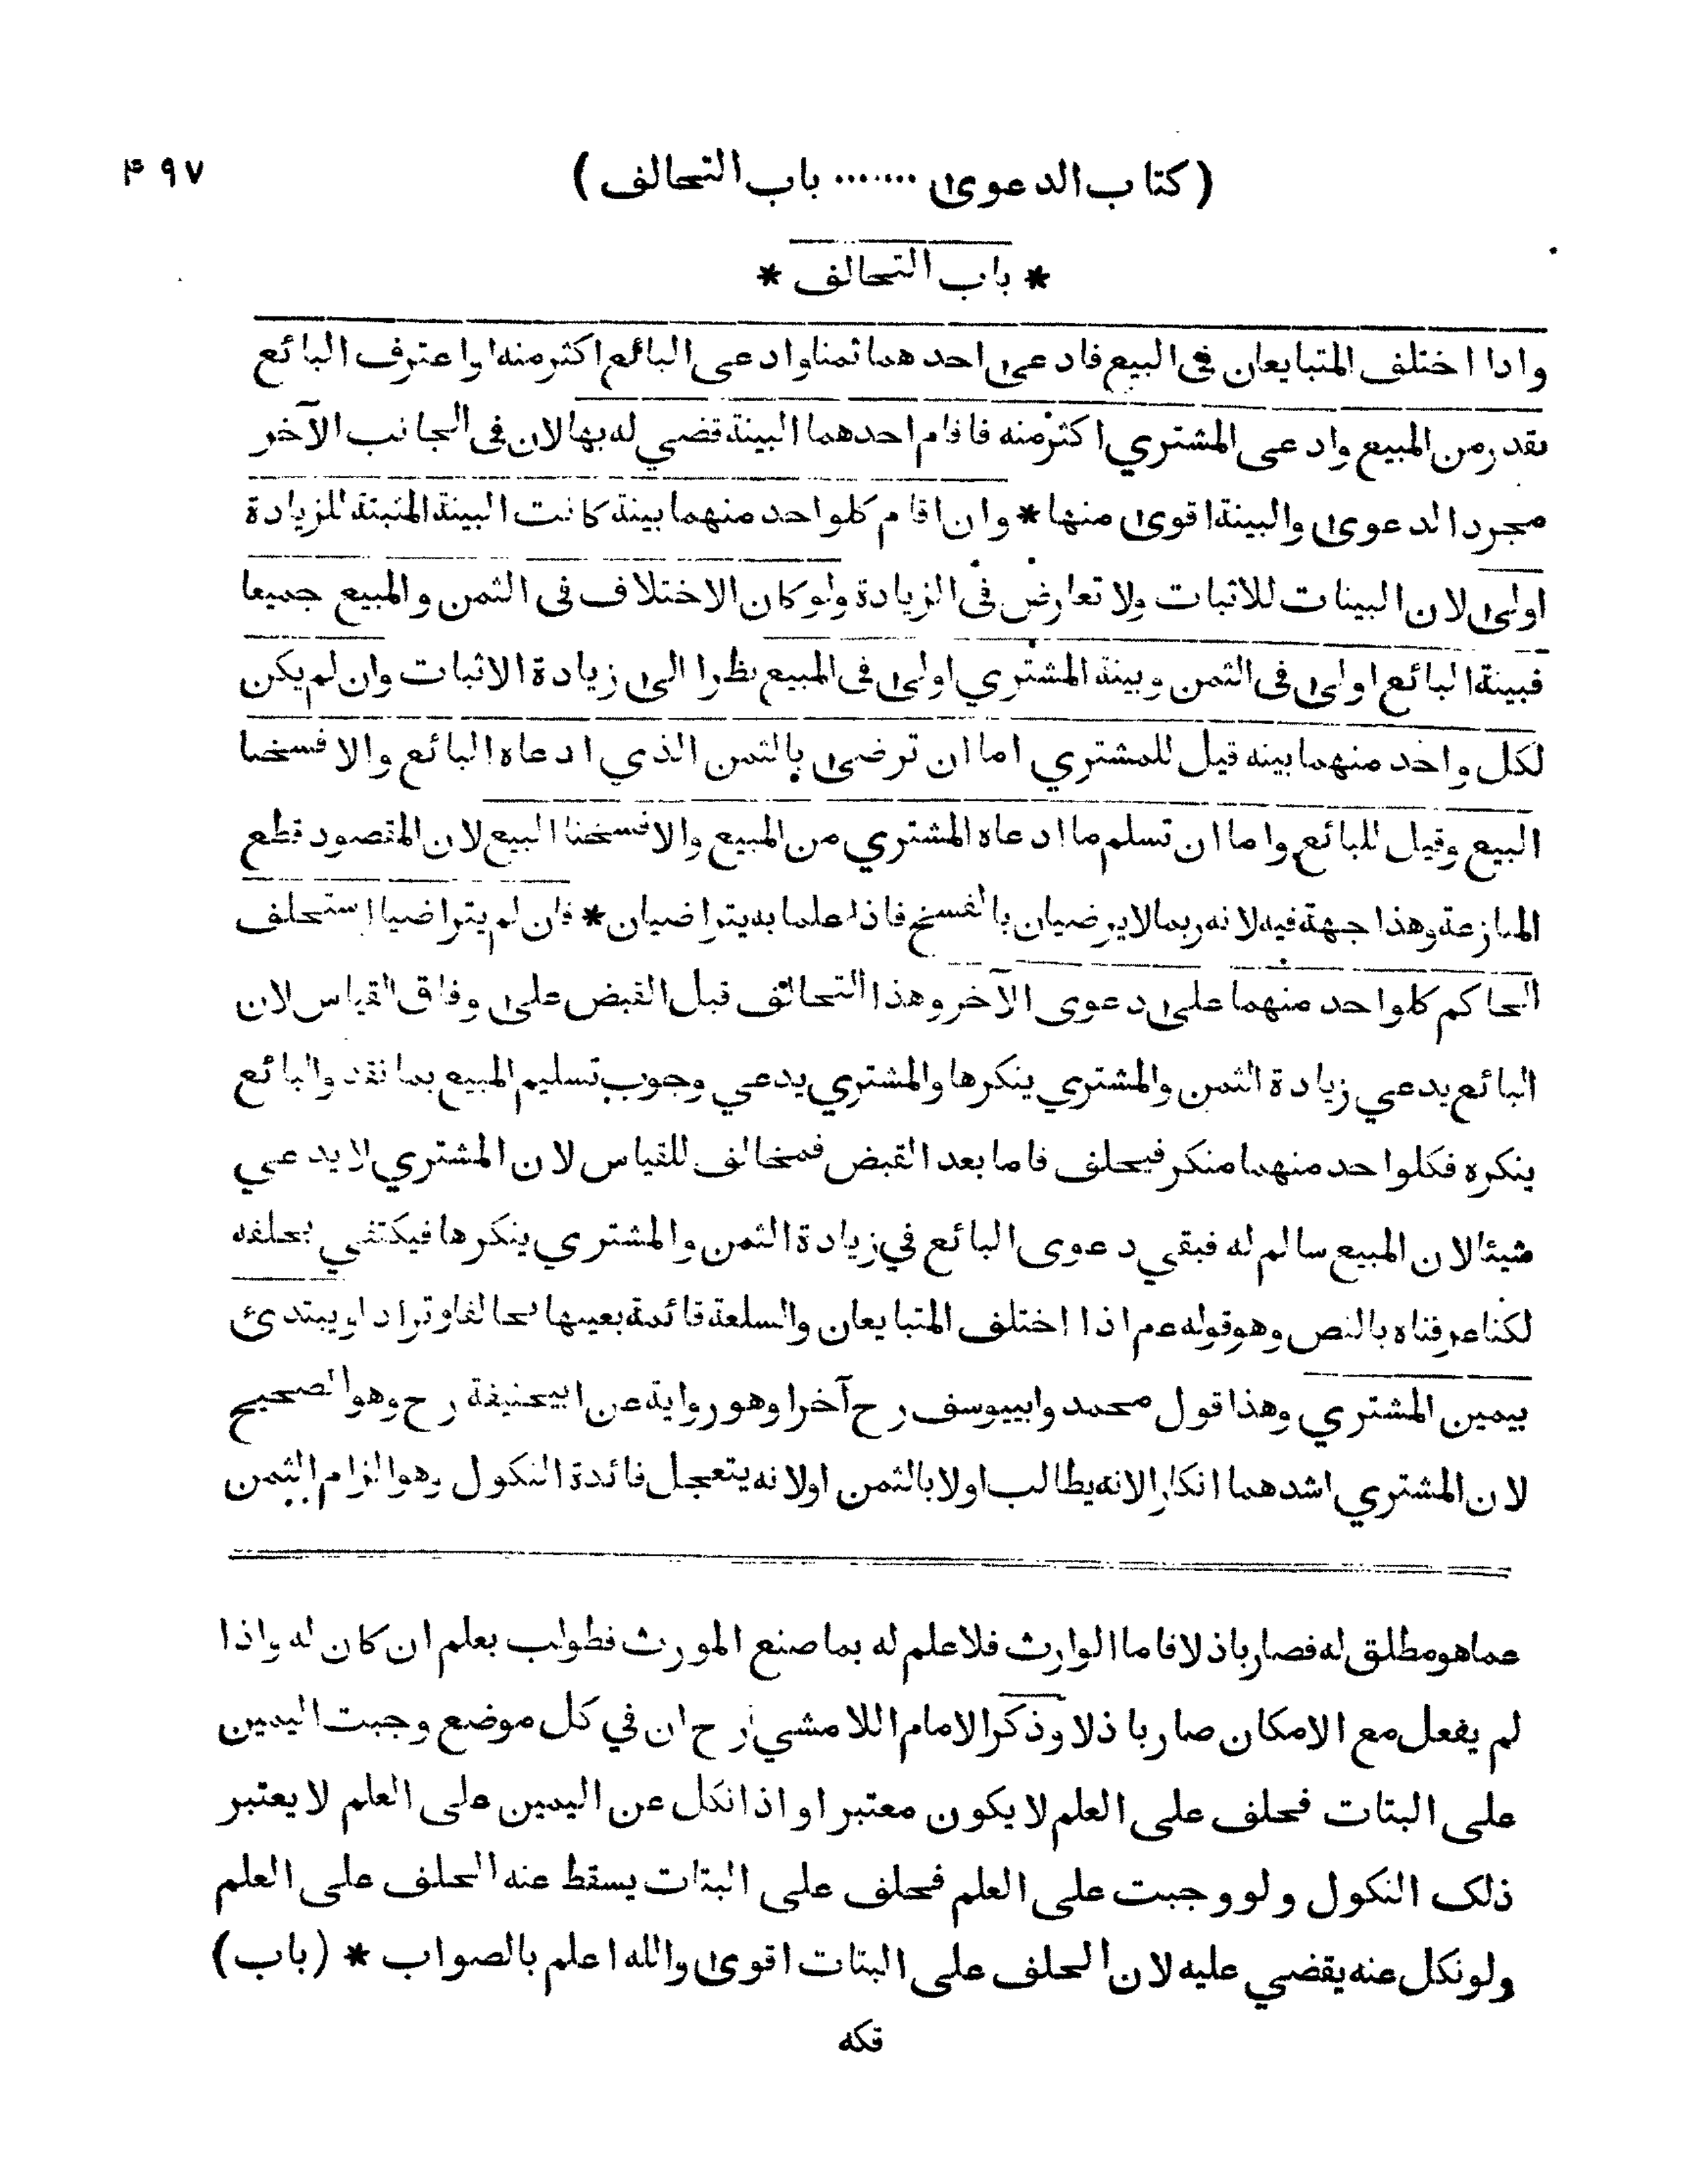 (كتاب الدعوى ....... باب التحالف) ۴۹۷
* باب التحالف *
واذا اختلف المتبايعان فى البيع فادعى احدهما ثمنا وادعى البائع اكثر منه او اعترف البائع
بقدر من المبيع وادعى المشتري اكثر منه فاقام احدهما البينة قضي له بها لان فى الجانب الآخر
مجرد الدعوى والبينة اقوى منها * وان اقام كلواحد منهما بينة كانت البينة المثبتة للزيادة
اولى لان البينات للاثبات ولا تعارض فى الزيادة ولو كان الاختلاف فى الثمن والمبيع جميعا
فبينة البائع اولى فى الثمن وبينة المشتري اولى فى المبيع نظرا الى زيادة الاثبات وان لم يكن
لكل واحد منهما بينه قيل للمشتري اما ان ترضى بالثمن الذي ادعاه البائع والا فسخنا
البيع وقيل للبائع واما ان تسلم ما ادعاه المشتري من المبيع والا فسخنا البيع لان المقصود قطع
المنازعة وهذا جهة فيه لانه ربما لا يرضيان بالفسخ فاذا علما به يتراضيان * فان لم يتراضيا استحلف
الحاكم كلواحد منهما على دعوى الآخر وهذا التحالف قبل القبض على وفاق القياس لان
البائع يدعي زيادة الثمن والمشتري ينكرها والمشتري يدعي وجوب تسليم المبيع بما نقد والبائع
ينكره فكلواحد منهما منكر فيحلف فاما بعد القبض فمخالف للقياس لان المشتري لا يدعي
شيئا لان المبيع سالم له فبقي دعوى البائع في زيادة الثمن والمشتري ينكرها فيكتفي بحلفه
لكنا عرفناه بالنص وهو قوله عم اذا اختلف المتبايعان والسلعة قائمة بعينها تحالفا وترادا ويبتدئ
بيمين المشتري وهذا قول محمد وابييوسف رح آخرا وهو رواية عن ابيحنيفة رح وهو الصحيح
لان المشتري اشدهما انكارا لانه يطالب اولا بالثمن اولانه يتعجل فائدة النكول وهو الزام الثمن
عما هو مطلق له فصار باذلا فاما الوارث فلا علم له بما صنع المورث فطولب بعلم ان كان له واذا
لم يفعل مع الامكان صار باذلا وذكر الامام اللامشي رح ان في كل موضع وجبت اليمين
على البتات فحلف على العلم لا يكون معتبرا واذا نكل عن اليمين على العلم لا يعتبر
ذلك النكول ولو وجبت على العلم فحلف على البتات يسقط عنه الحلف على العلم
ولو نكل عنه يقضي عليه لان الحلف على البتات اقوى والله اعلم بالصواب * (باب)
قكه